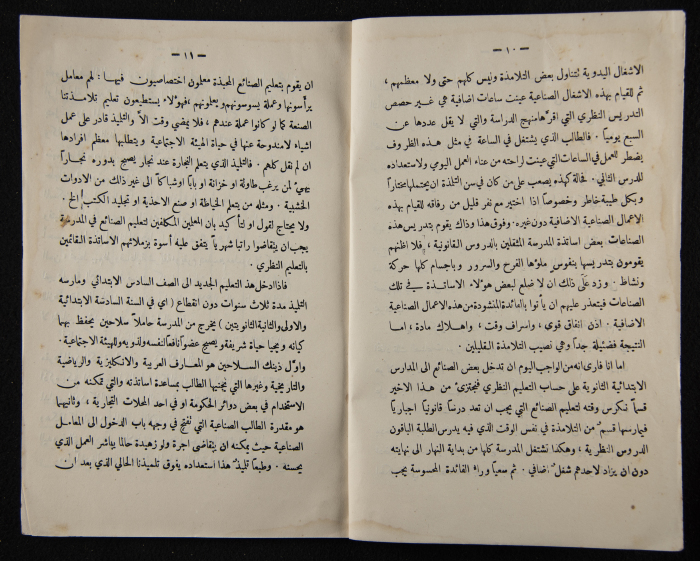 — ١٠ —
الاشغال اليدوية لتتناول بعض التلامذة وليس كلهم حتى ولا معظمهم ،
ثم للقيام بهذه الاشغال الصناعية عينت ساعات اضافية هي غير حصص
التدريس النظري التي اقرها منهج الدراسة والتي لا يقل عددها عن
السبع يومياً . فالطالب الذي يشتغل في الساعة في مثل هذه الظروف
يضطر للعمل في الساعات التي عينت لراحته من عناء العمل اليومي ولاستعداده
للدرس التالي . فحالة كهذه يصعب على من كان في سن التلمذة ان يحتملها مختاراً
وبكل طيبة خاطر وخصوصاً اذا اختير مع نفر قليل من رفاقه للقيام بهذه
الاعمال الصناعية الاضافية دون غيره . وفوق هذا وذاك يقوم بتدريس هذه
الصناعات بعض اساتذة المدرسة المثقلين بالدروس القانونية ، فلا اظنهم
يقومون بتدريسها بنفوس ملؤها الفرح والسرور وباجسام كلها حركة
ونشاط . وزد على ذلك ان لا ضلع لبعض هولاء الاساتذة في تلك
الصناعات فيتعذر عليهم ان يأتوا بالفائدة المنشودة من هذه الاعمال الصناعية
الاضافية . اذن انفاق قوى ، واسراف وقت ، واهلاك مادة ، اما
النتيجة فضئيلة جداً وهي نصيب التلامذة القليلين .
اما انا فارى انه من الواجب اليوم ان تدخل بعض الصنائع الى المدارس
الابتدائية الثانوية على حساب التعليم النظري فتجتزئ من هذا الاخير
قسماً تكرس وقته لتعليم الصنائع التي يجب ان تعد درساً قانونياً اجبارياً
فيمارسها قسم من التلامذة في نفس الوقت الذي فيه يدرس الطلبة الباقون
الدروس النظرية ، وهكذا تشتغل المدرسة كلها من بداية النهار الى نهايته
دون ان يزاد لاحدهم شغل اضافي . ثم سعياً وراء الفائدة المحسوسة يجب
— ١١ —
ان يقوم بتعليم الصنائع المحبذة معلمون اختصاصيون فيها : لهم معامل
يرأسونها وعملة يسوسونهم ويعلمونهم ، فهؤلاء يستطيعون تعليم تلامذتنا
الصنعة كما لو كانوا عملة عندهم ، فلا يمضي وقت الا والتلميذ قادر على عمل
اشياء لا مندوحة عنها في حياة الهيئة الاجتماعية ويتطلبها معظم افرادها
ان لم نقل كلهم . فالتلميذ الذي يتعلم النجارة عند نجار يصبح بدوره نجاراً
يهيئ لمن يرغب طاولة او خزانة او باباً او شباكاً الى غير ذلك من الادوات
الخشبية . ومثله من يتعلم الخياطة او صنع الاحذية او تجليد الكتب الخ .
ولا يحتاج لقول او لتأكيد بان المعلمين المكلفين لتعليم الصنائع في المدرسة
يجب ان يتقاضوا راتباً شهرياً يتفق عليه أسوة بزملائهم الاساتذة القائمين
بالتعليم النظري .
فاذا ادخل هذا التعليم الجديد الى الصف السادس الابتدائي ومارسه
التلميذ مدة ثلاث سنوات دون انقطاع ( اي في السنة السادسة الابتدائية
والاولى والثانية الثانويتين ) يخرج من المدرسة حاملاً سلاحين يحفظ بهما
كيانه ويحيا حياة شريفة ويصبح عضواً نافعاً لنفسه ولذويه وللهيئة الاجتماعية .
واول ذينك السلاحين هو المعارف العربية والانكليزية والرياضية
والتاريخية وغيرها التي يجنيها الطالب بمساعدة اساتذته والتي تمكنه من
الاستخدام في بعض دوائر الحكومة او في احد المحلات التجارية ، وثانيهما
هو مقدرة الطالب الصناعية التي تفتح في وجهه باب الدخول الى المعامل
الصناعية حيث يمكنه ان يتقاضى اجرة ولو زهيدة حالما يباشر العمل الذي
يحسنه . وطبعاً تلميذ هذا استعداده يفوق تلميذنا الحالي الذي بعد ان